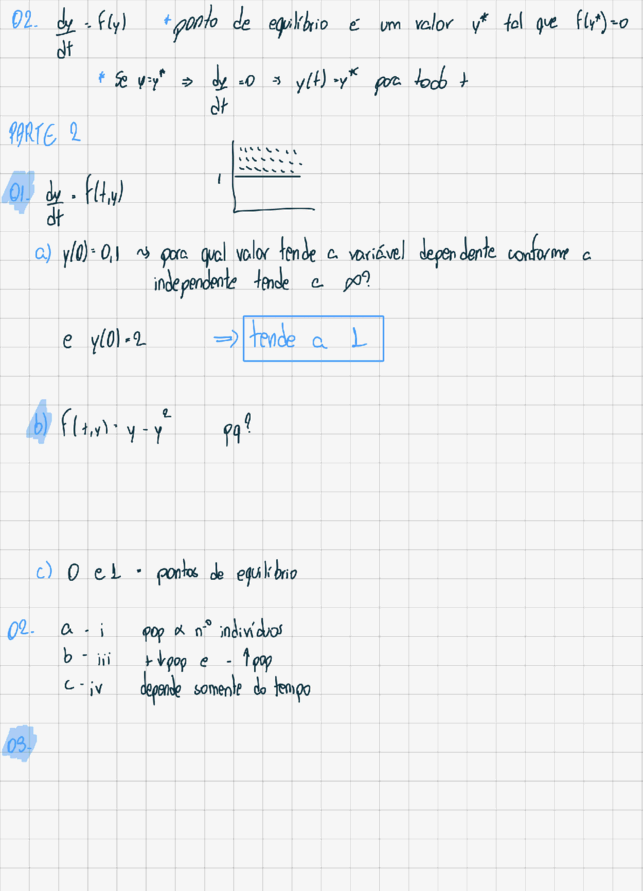 02. dy/dt = f(y) * ponto de equilíbrio é um valor y* tal que f(y*)=0
* Se y=y* ⇒ dy/dt =0 ⇒ y(t)=y* para todo t
PARTE 2
1
01. dy/dt = f(t,y)
a) y(0)=0,1 ~> para qual valor tende a variável dependente conforme a
independente tende a ∞?
e y(0)=2 ⇒ tende a 1
b) f(t,y) = y - y² pq?
c) 0 e 1 = pontos de equilíbrio
02. a - i pop ∝ nº indivíduos
b - iii +↓pop e - ↑pop
c - iv depende somente do tempo
03.